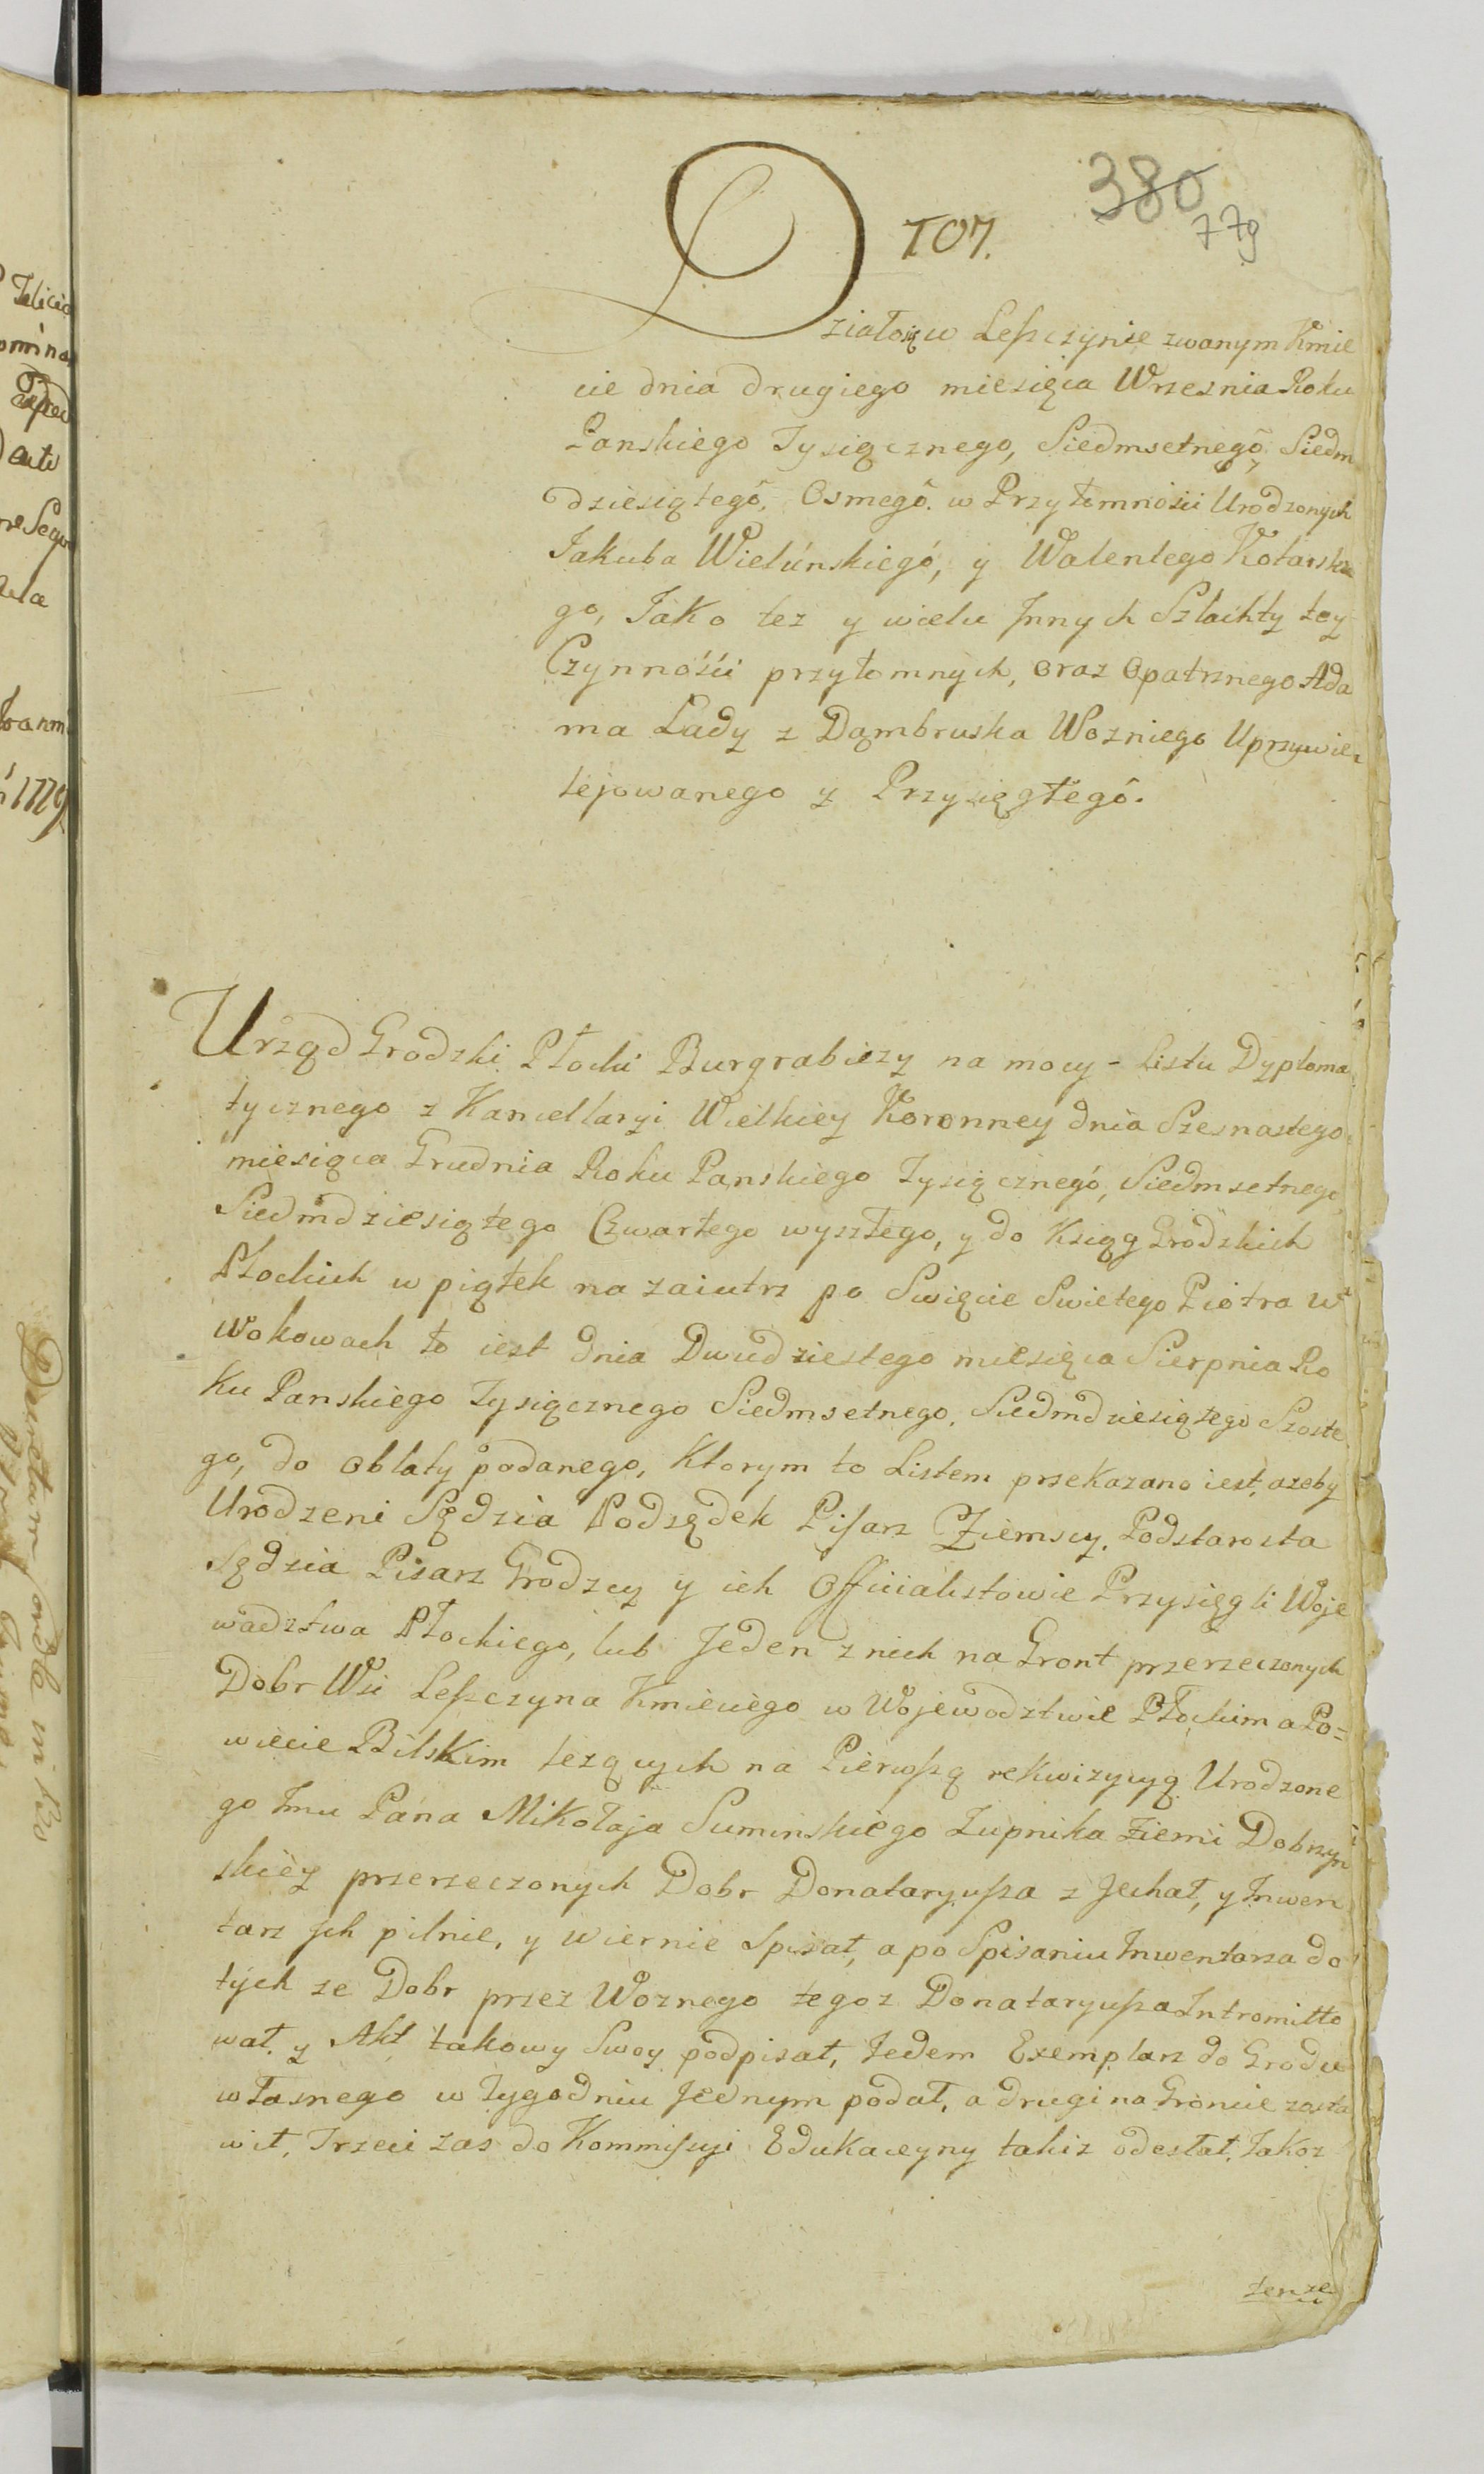 380
779
107.
Działo się w Lefzczynie zwanym Kmie
cie dnia drugiego miesięca Wrzesnia Roku
Panskiego Tysiącznego, Siedmsetnegõ Siedm
dziesiątegõ, Osmegõ. w Przytomnośii Urodzonych
Jakuba Wieluńskiegó, y Walentego Kotarskie
go, Jako tez y wielu Jnnych Szlachty tey
Czynnośći przytomnych, oraz Opatrznego Ada
ma Lady z Dąmbruska Wozniego Uprzywie
lejowanego y Przysięgłegõ.
Urząd Grodzki Płocki Burgrabiezy na mocy - Listu Dyploma
tycznego z Kancellaryi Wielkiey Koronney dnia Szesnastego
miesiąca Grudnia Roku Panskiego Tysiącznegó, Siedmsetnego
Siedmdziesiątego Czwartego wyszłego, y do Ksiąg Grodzkich
Płockich w piątek na zaiutrz po Swięcie Swietego Piotra w
wokowach to iest dnia Dwudziestego miesięca Sierpnia Ro
ku Panskiego Tysiącznego Siedmsetnego, Siedmdziesiątego Szoste
go, do Oblaty podanego, Ktorym to Listem przekazano iest, azeby
Urodzeni Sędzia Podsędek Pisarz Ziemscy, Podstarosta
Sędzia Pisarz Grodzcy y ich Officialistowie Przysięgli Woje
wadztwa Płockiego, lub Jeden z nich na Gront przerzeczonych
Dobr Wsi Lefzczyna Kmieciego w Wojewodztwie Płockim a Po=
wiecie Bilskim lezących na Pierwfzą rekwizycyą Urodzone
go Jmu Pana Mikołaja Suminskiego Łupnika Ziemi Dobrzyn
skiey przerzeczonych Dobr Donataryufza z Jechał, y Jnwen
tarz Jch pilnie, y wiernie Spisał, a po Spisaniu Jnwentarza do
tych ze Dobr przez Woznego tegoz Donataryufza Intromitto
wał, y Akt takowy Swoy podpisał, Jedem Exemplarz do Grodu
własnego w Tygodniu Jednym podał, a drugi na Groncie zosta
wił, Trzeci zas do Kommifsyi Edukacyyny takiz odesłał, Jakoz
tenze